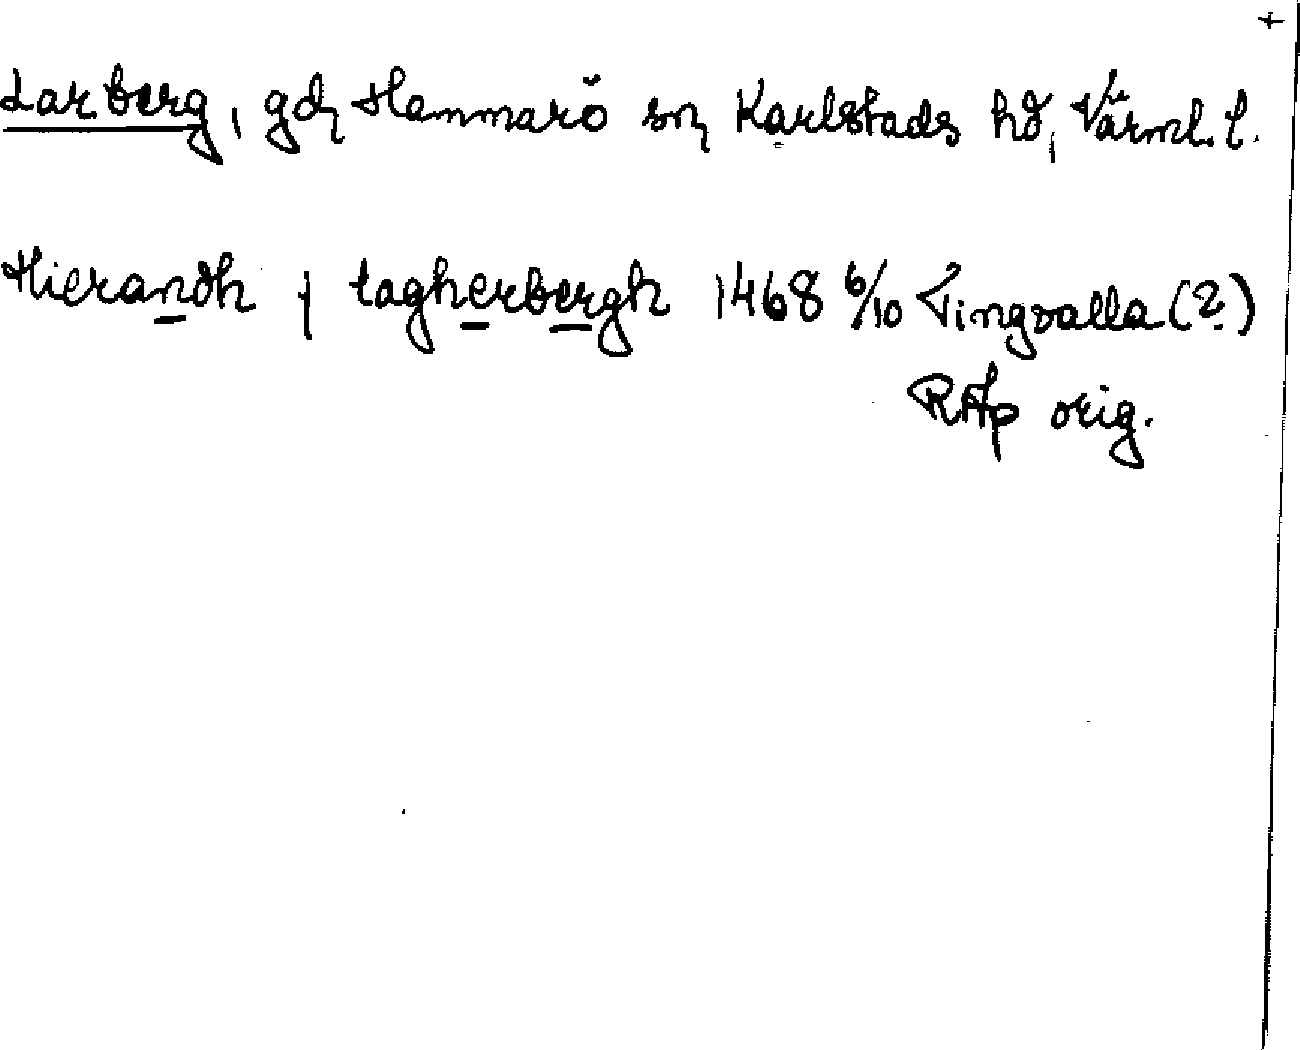 +
Larberg, gd, Hammarö sn, Karlstads hd, Värml. l.
Hierandh j lagherbergh 1468 6/10 Tingvalla (?)
RAp orig.